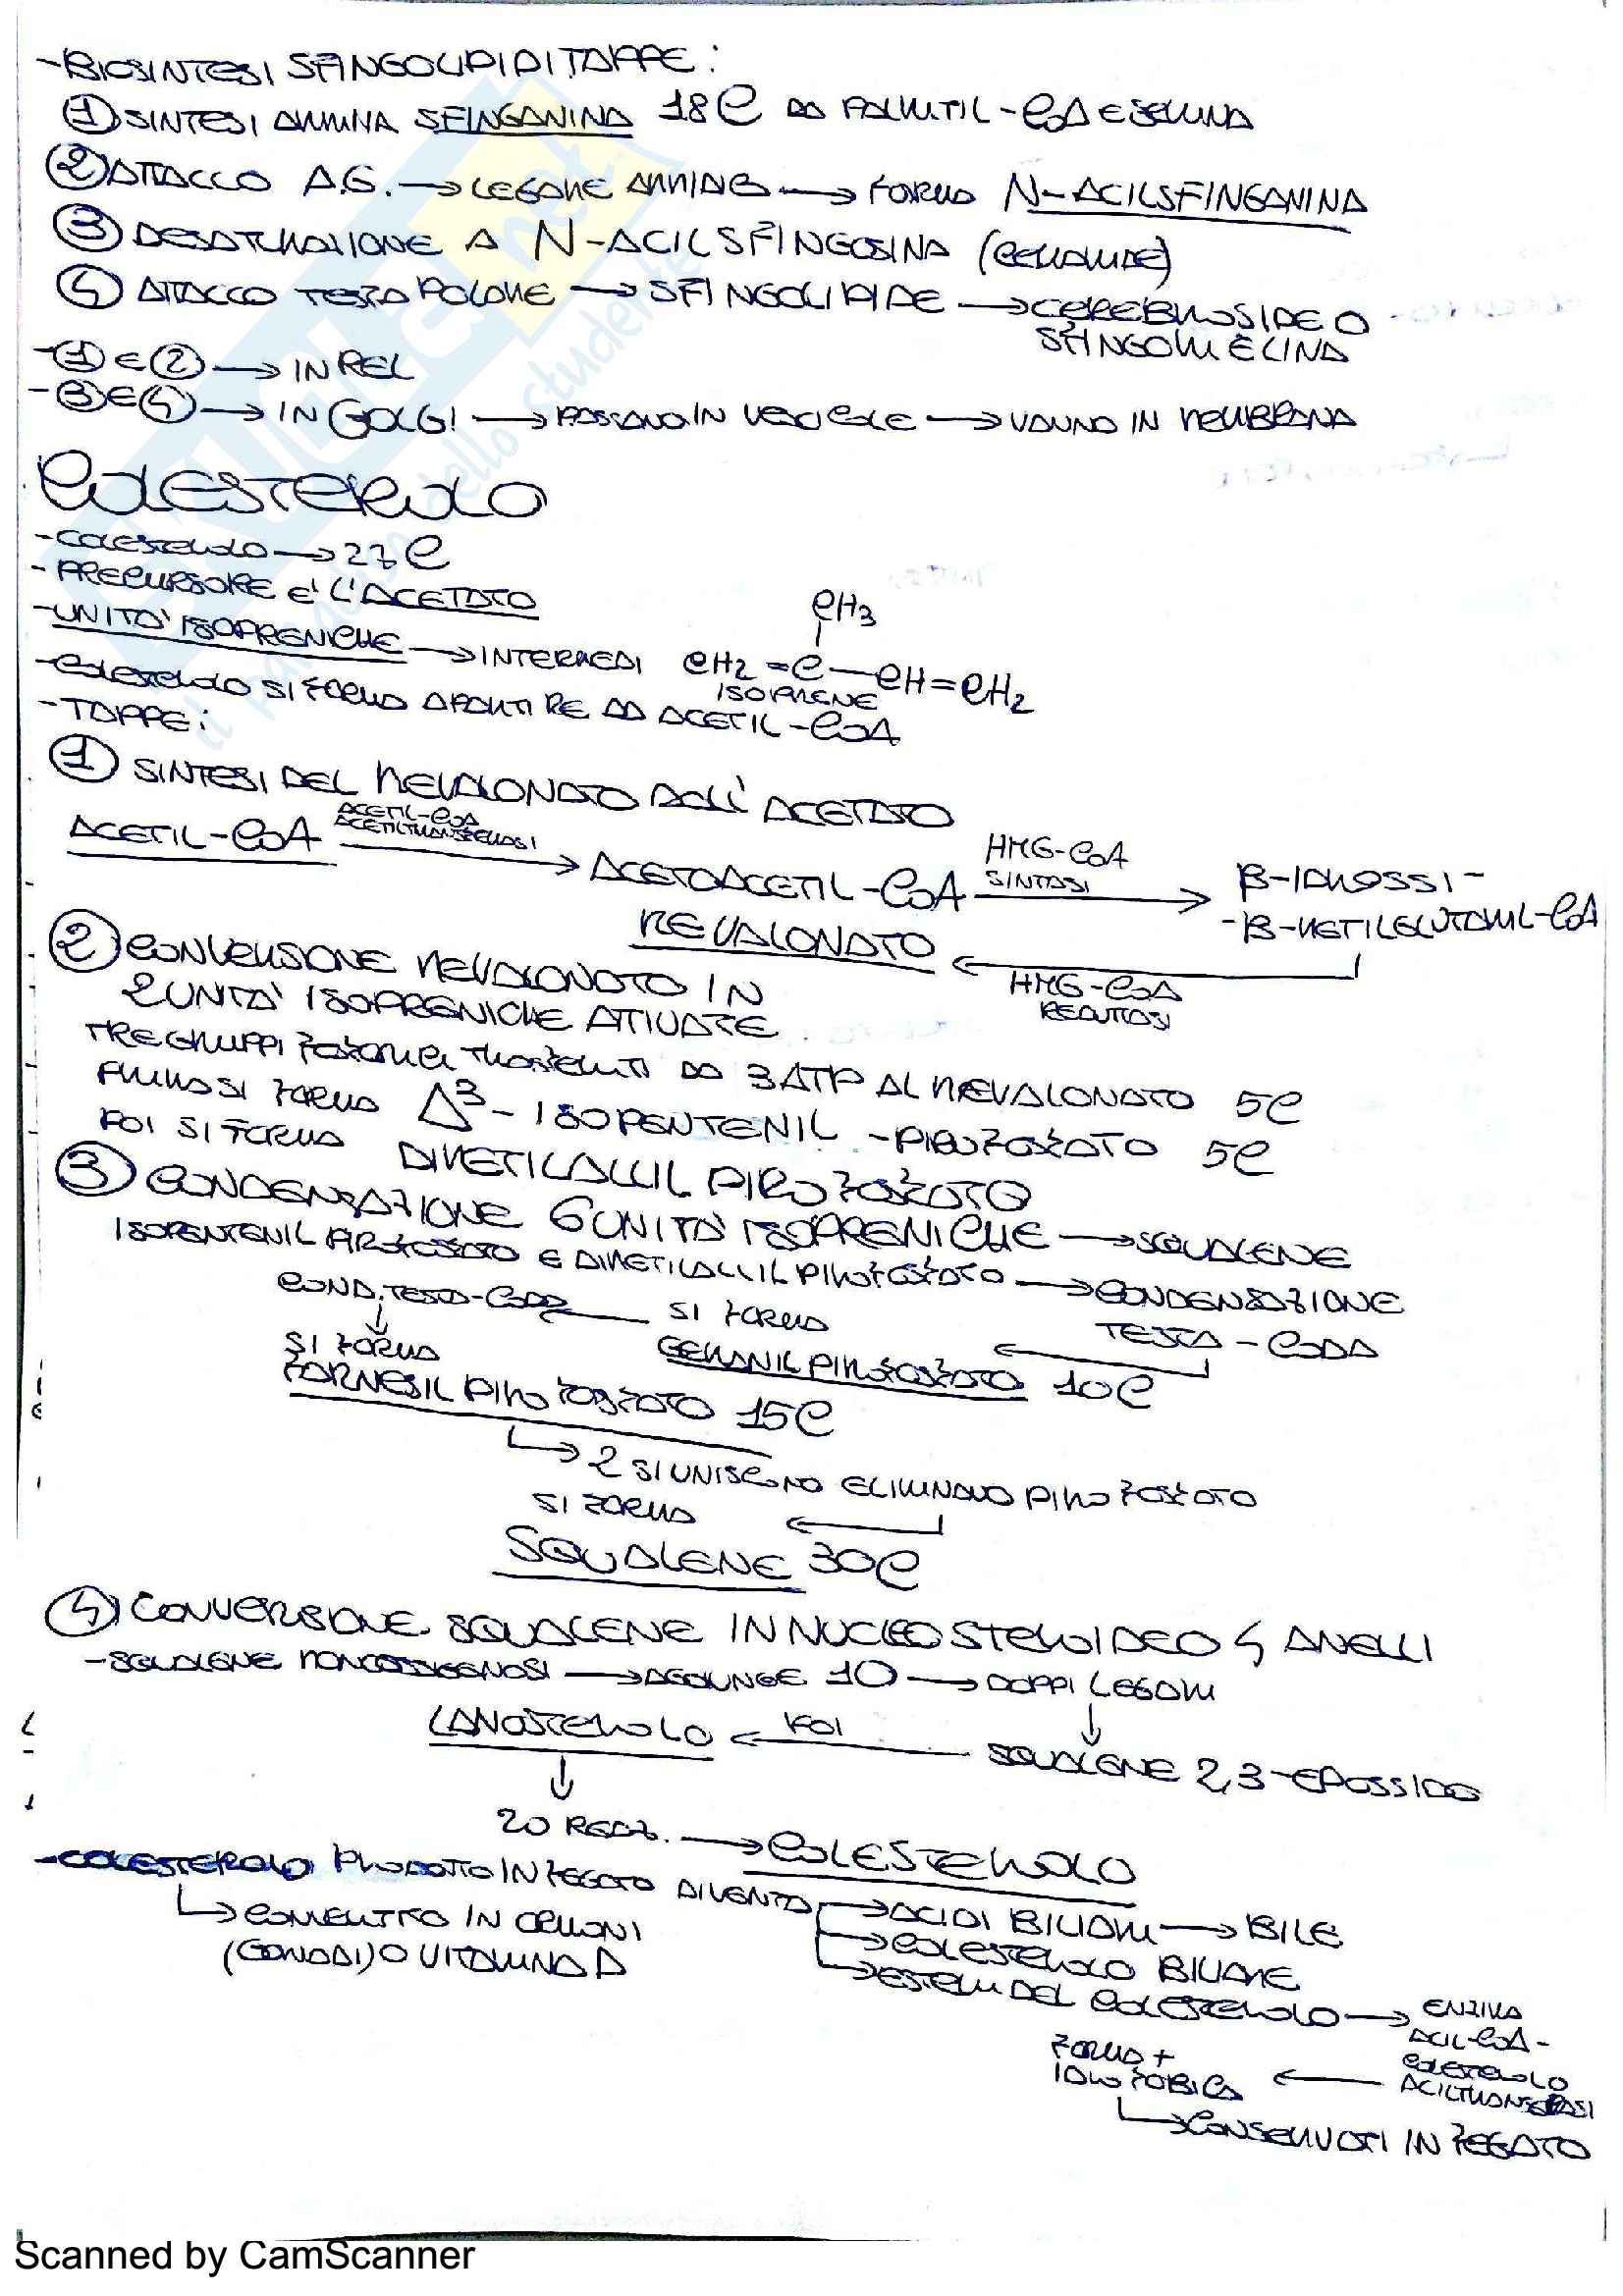 - BIOSINTESI SFINGOLIPIDI TAPPE:
① SINTESI AMMINA SFINGANINA 18C DA PALMITIL-CoA E SERINA
② ATTACCO A.G. → LEGAME AMMIDE → FORMA N-ACILSFINGANINA
③ DESATURAZIONE A N-ACILSFINGOSINA (CERAMIDE)
④ ATTACCO TESTA POLARE → SFINGOLIPIDE → CEREBROSIDE O
SFINGOMIELINA
- ① E ② → IN REL
- ③ E ④ → IN GOLGI → PASSANO IN VESCICOLE → VANNO IN MEMBRANA
COLESTEROLO
- COLESTEROLO → 27C
- PRECURSORE E' L'ACETATO
- UNITA' ISOPRENICHE → INTERMEDI
CH3
CH2=C—CH=CH2
ISOPRENE
- COLESTEROLO SI FORMA A PARTIRE DA ACETIL-CoA
- TAPPE:
① SINTESI DEL MEVALONATO DALL' ACETATO
ACETIL-CoA ACETIL-CoA ACETILTRANSFERASI → ACETOACETIL-CoA HMG-CoA SINTASI → β-IDROSSI-
-β-METILGLUTARIL-CoA
MEVALONATO ← HMG-CoA REDUTTASI
② CONVERSIONE MEVALONATO IN
2 UNITA' ISOPRENICHE ATTIVATE
TRE GRUPPI FOSFORICI TRASFERITI DA 3 ATP AL MEVALONATO 5C
PRIMA SI FORMA Δ3-ISOPENTENIL-PIROFOSFATO 5C
POI SI FORMA DIMETILALLIL PIROFOSFATO
③ CONDENSAZIONE 6 UNITA' ISOPRENICHE → SQUALENE
ISOPENTENIL PIROFOSFATO E DIMETILALLIL PIROFOSFATO → CONDENSAZIONE
TESTA-CODA
SI FORMA
GERANIL PIROFOSFATO 10C
COND. TESTA-CODA
↓
SI FORMA
FARNESIL PIROFOSFATO 15C
↳ 2 SI UNISCONO ELIMINANO PIROFOSFATO
SI FORMA ←
SQUALENE 30C
④ CONVERSIONE SQUALENE IN NUCLEO STEROIDEO 4 ANELLI
- SQUALENE MONOOSSIGENASI → AGGIUNGE 1O → DOPPI LEGAMI
↓
LANOSTEROLO ← POI SQUALENE 2,3-EPOSSIDO
↓
20 REAZ. → COLESTEROLO
- COLESTEROLO PRODOTTO IN FEGATO DIVENTA → ACIDI BILIARI → BILE
→ COLESTEROLO BILIARE
→ ESTERI DEL COLESTEROLO → ENZIMA
ACIL-CoA-
COLESTEROLO
ACILTRANSFERASI
↳ CONVERTITO IN ORMONI
(GONADI) O VITAMINA D
FORMA +
IDROFOBICA ←
↳ CONSERVATI IN FEGATO
il paradiso dello studente
Scanned by CamScanner